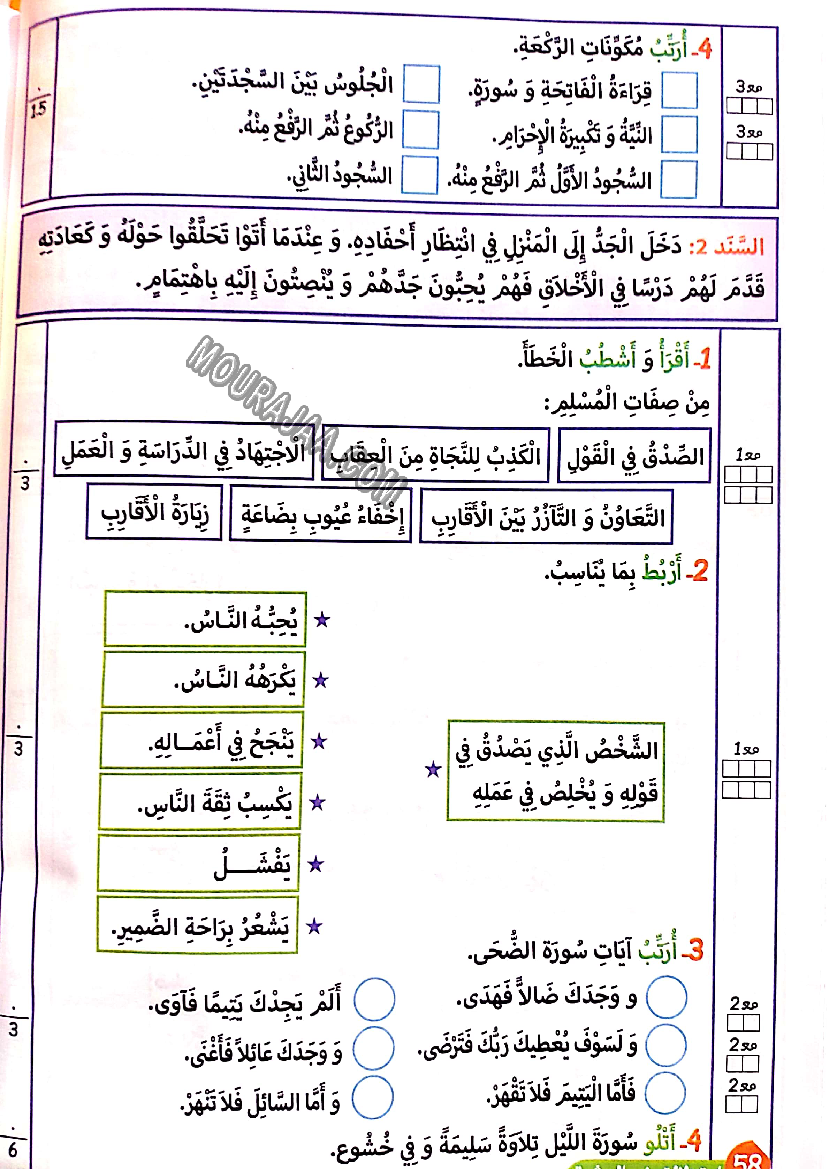 4ـ أُرَتِّبُ مُكَوِّنَاتِ الرَّكْعَةِ.
قِرَاءَةُ الْفَاتِحَةِ وَ سُورَةٍ. الْجُلُوسُ بَيْنَ السَّجْدَتَيْنِ.
النِّيَّةُ وَ تَكْبِيرَةُ الْإِحْرَامِ. الرُّكُوعُ ثُمَّ الرَّفْعُ مِنْهُ.
السُّجُودُ الأَوَّلُ ثُمَّ الرَّفْعُ مِنْهُ. السُّجُودُ الثَّانِي.
مع3
مع3
15
السَّنَد 2: دَخَلَ الْجَدُّ إِلَى الْمَنْزِلِ فِي انْتِظَارِ أَحْفَادِهِ. وَ عِنْدَمَا أَتَوْا تَحَلَّقُوا حَوْلَهُ وَ كَعَادَتِهِ
قَدَّمَ لَهُمْ دَرْسًا فِي الْأَخْلَاقِ فَهُمْ يُحِبُّونَ جَدَّهُمْ وَ يُنْصِتُونَ إِلَيْهِ بِاهْتِمَامٍ.
1ـ أَقْرَأُ وَ أَشْطُبُ الْخَطَأَ.
مِنْ صِفَاتِ الْمُسْلِمِ:
الصِّدْقُ فِي الْقَوْلِ الْكَذِبُ لِلنَّجَاةِ مِنَ الْعِقَابِ الْاجْتِهَادُ فِي الدِّرَاسَةِ وَ الْعَمَلِ
التَّعَاوُنُ وَ التَّآزُرُ بَيْنَ الْأَقَارِبِ إِخْفَاءُ عُيُوبِ بِضَاعَةٍ زِيَارَةُ الْأَقَارِبِ
مع1
3
MOURAJAA.COM
2ـ أَرْبُطُ بِمَا يُنَاسِبُ.
الشَّخْصُ الَّذِي يَصْدُقُ فِي
قَوْلِهِ وَ يُخْلِصُ فِي عَمَلِهِ
يُحِبُّهُ النَّاسُ.
يَكْرَهُهُ النَّاسُ.
يَنْجَحُ فِي أَعْمَـالِهِ.
يَكْسِبُ ثِقَةَ النَّاسِ.
يَفْشَـــلُ
يَشْعُرُ بِرَاحَةِ الضَّمِيرِ.
مع1
3
3ـ أُرَتِّبُ آيَاتِ سُورَة الضُّحَى.
و وَجَدَكَ ضَالاًّ فَهَدَى. أَلَمْ يَجِدْكَ يَتِيمًا فَآوَى.
وَ لَسَوْفَ يُعْطِيكَ رَبُّكَ فَتَرْضَى. وَ وَجَدَكَ عَائِلاً فَأَغْنَى.
فَأَمَّا الْيَتِيمَ فَلاَ تَقْهَرْ. وَ أَمَّا السَّائِلَ فَلاَ تَنْهَرْ.
مع2
مع2
مع2
3
4ـ أَتْلُو سُورَةَ اللَّيْل تِلاَوَةً سَلِيمَةً وَ فِي خُشُوع.
6
58